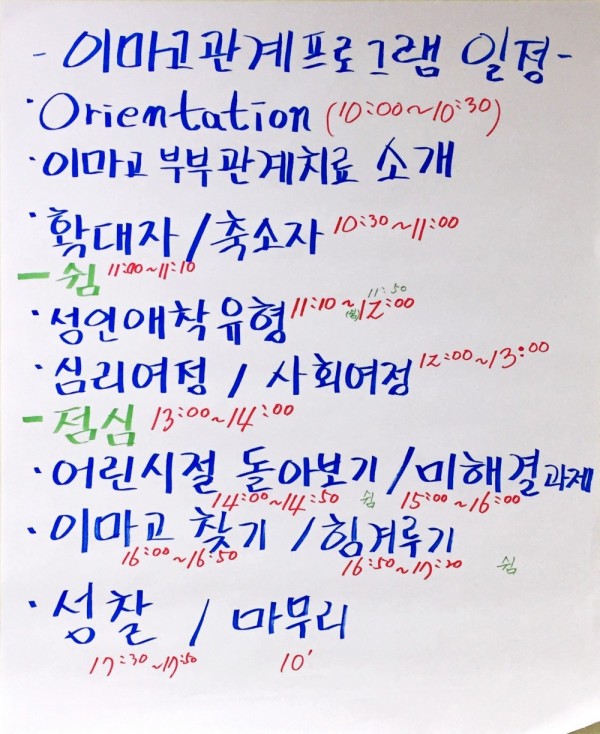 - 이마고관계프로그램 일정 -
· Orientation (10:00~10:30)
· 이마고 부부관계치료 소개
· 확대자 / 축소자 10:30~11:00
- 쉼 11:00~11:10
11:50
· 성인애착유형 11:10~ (쉼) 12:00
· 심리여정 / 사회여정 12:00~13:00
- 점심 13:00~14:00
· 어린시절 돌아보기 / 미해결과제
14:00~14:50 쉼 15:00~16:00
· 이마고 찾기 / 힘겨루기
16:00~16:50 16:50~17:20 쉼
· 성찰 / 마무리
17:30~17:50 10'